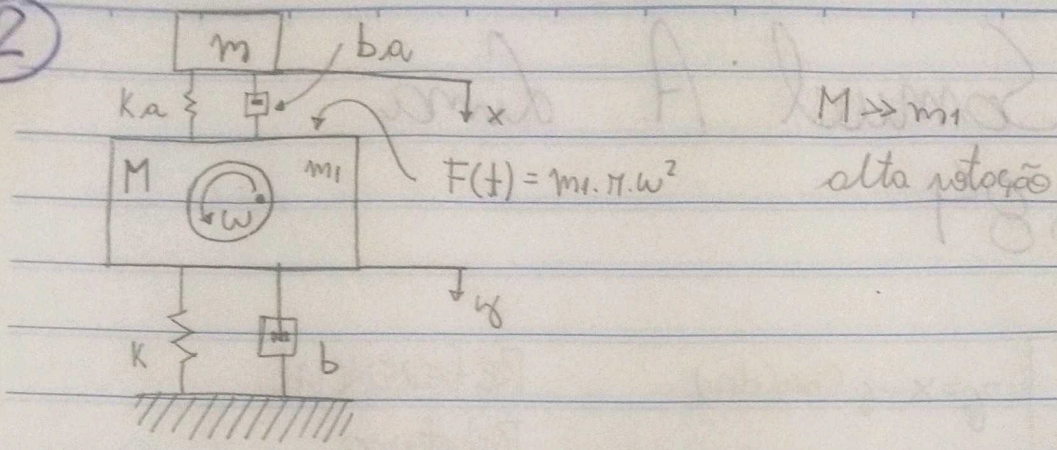 2
m
ba
Ka
x
M >> m1
M
m1
F(t) = m1.r.ω²
alta rotação
ω
y
K
b